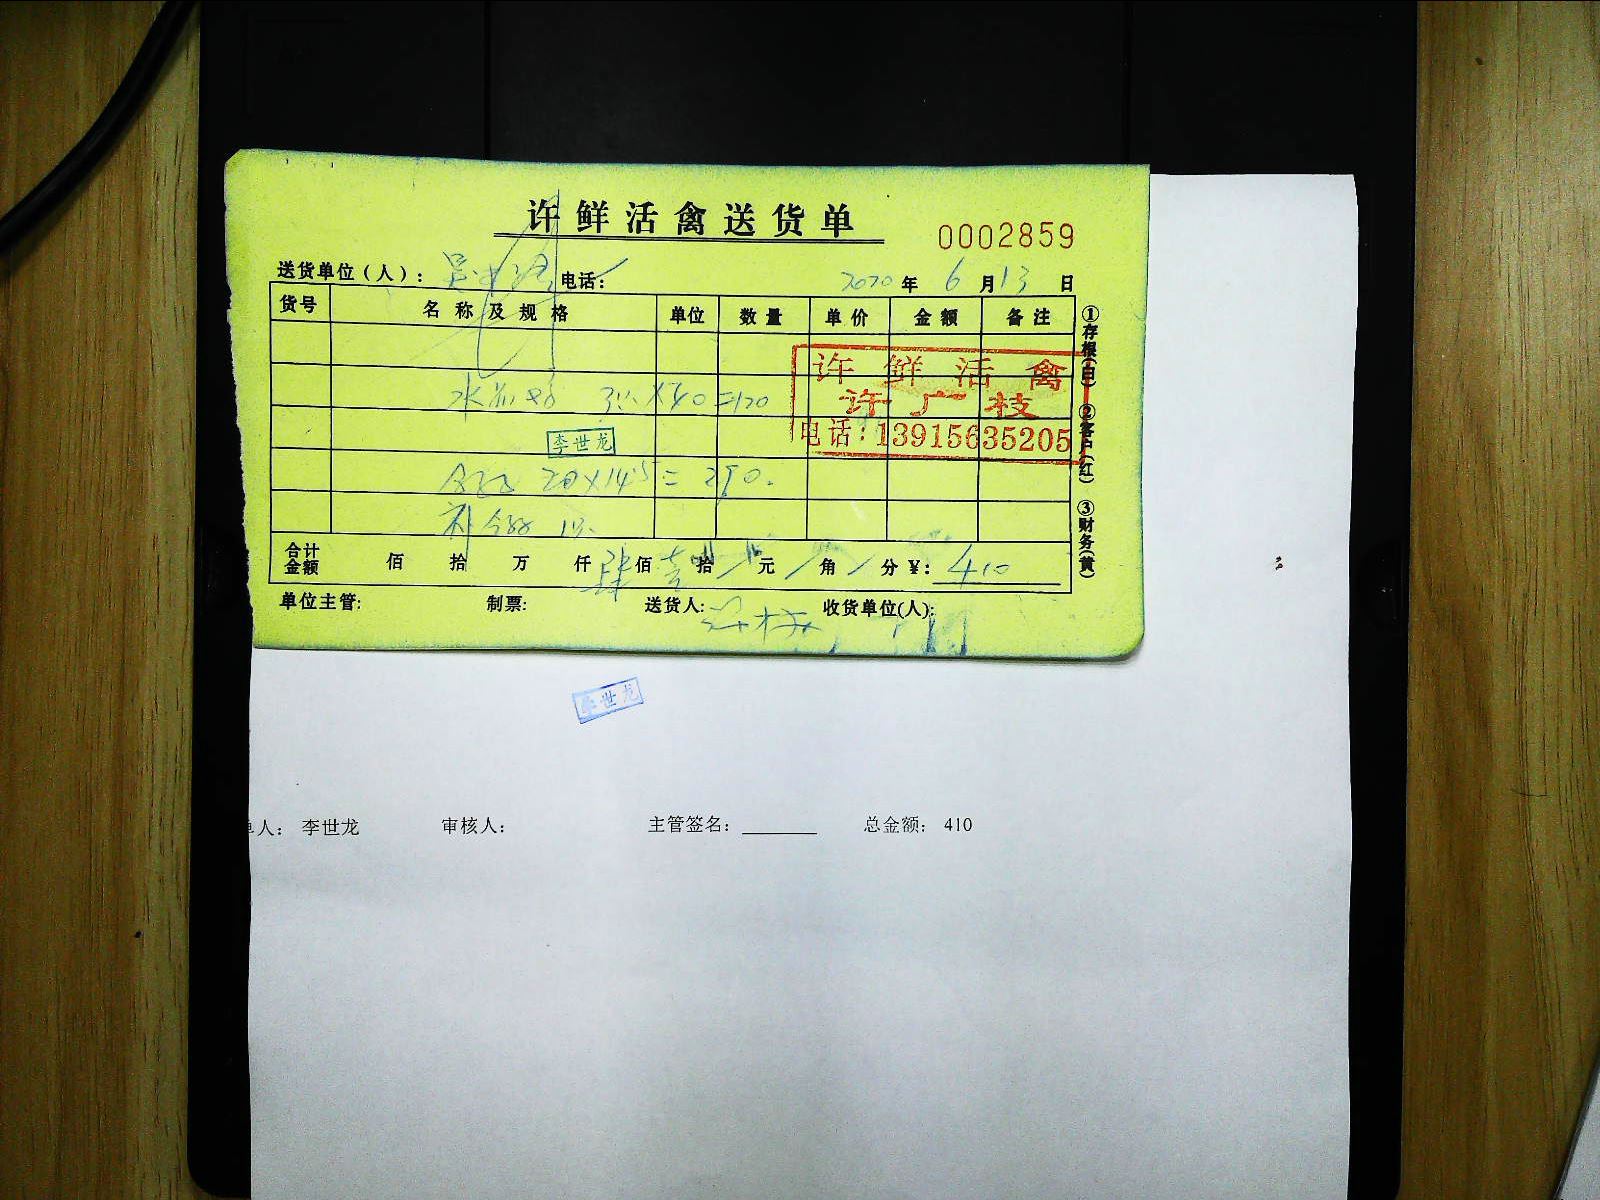 许鲜活禽送货单
0002859
送货单位(人): 电话: 2020年6月13日
货号 名称及规格 单位 数量 单价 金额 备注
许鲜活禽
许广枝
电话:13915635205
3只×40=120
李世龙
20×14.5=290.
补 1只
合计金额 佰 拾 万 仟 肆佰 壹拾 元 角 分 ¥: 410
单位主管: 制票: 送货人: 收货单位(人):
①存根(白) ②客户(红) ③财务(黄)
李世龙
单人: 李世龙 审核人: 主管签名: 总金额: 410